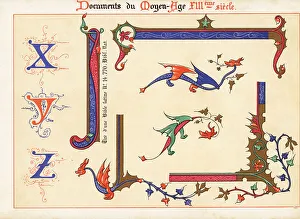 Documents du Moyen-Age XIIIème siècle.
X
y
Z
Tiré d'une Bible latine No 16.770. Bibl. Nat.